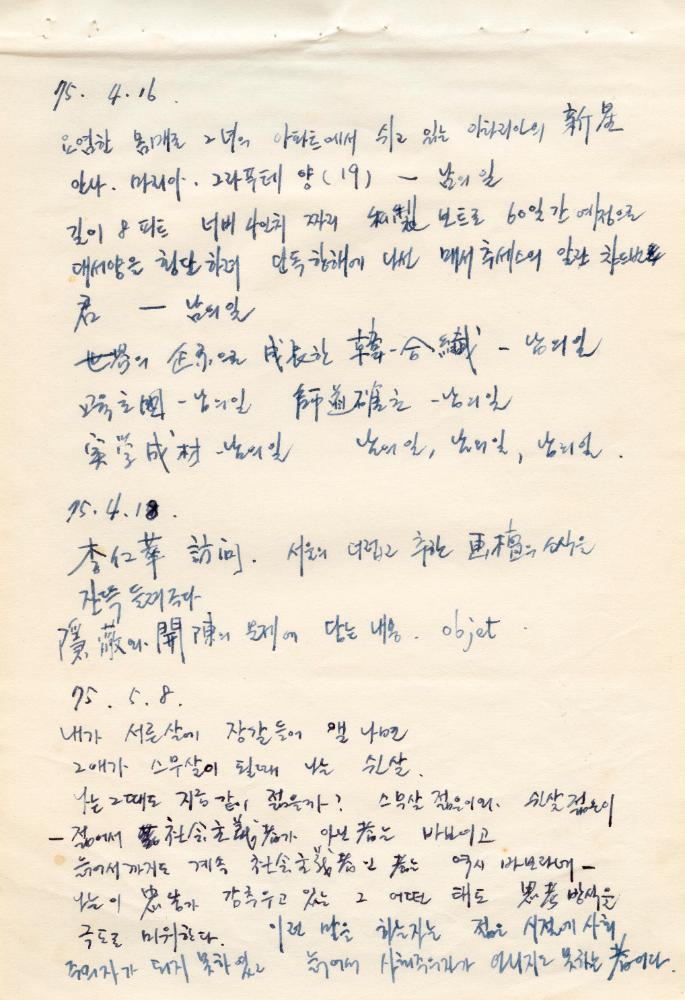 75. 4. 16.
요염한 몸매로 그녀의 아파트에서 쉬고 있는 이태리의 新星
안나. 마리아. 그라푸테 양 (19) — 남의 일
길이 8 피트 너비 4인치 짜리 私製 보트로 60일간 예정으로
대서양을 횡단하려 단독항해에 나선 매서추세스의 알란
君 — 남의 일
世界의 企業으로 成長한 韓一合纖 - 남의 일
교육 - 남의 일 師道確立 - 남의 일
実学成材 - 남의 일 남의 일, 남의 일, 남의 일.
75. 4. 18.
李仁華 訪问. 서울의 더럽고 추한 画壇의 소식을
잔뜩 들려주다
隱蔽와 開陳의 문제에 닿는 내용. objet.
75. 5. 8.
내가 서른살에 장갈들어 앨 나면
그애가 스무살이 될때 나는 쉰살.
나는 그때도 지금같이 젊을까? 스무살 젊은이와. 쉰살 젊은이
— 젊어서 社会主義者가 아닌 者는 바보이고
늙어서까지도 계속 社会主義者인 者는 역시 바보라네 —
나는 이 감추우고 있는 그 어떤 태도 思考방식을
극도로 미워한다. 이런 말을 하는자는 젊은 시절에 사회
주의자가 되지 못하였고 늙어서 사회주의자가 아니지도 못하는 者이다.